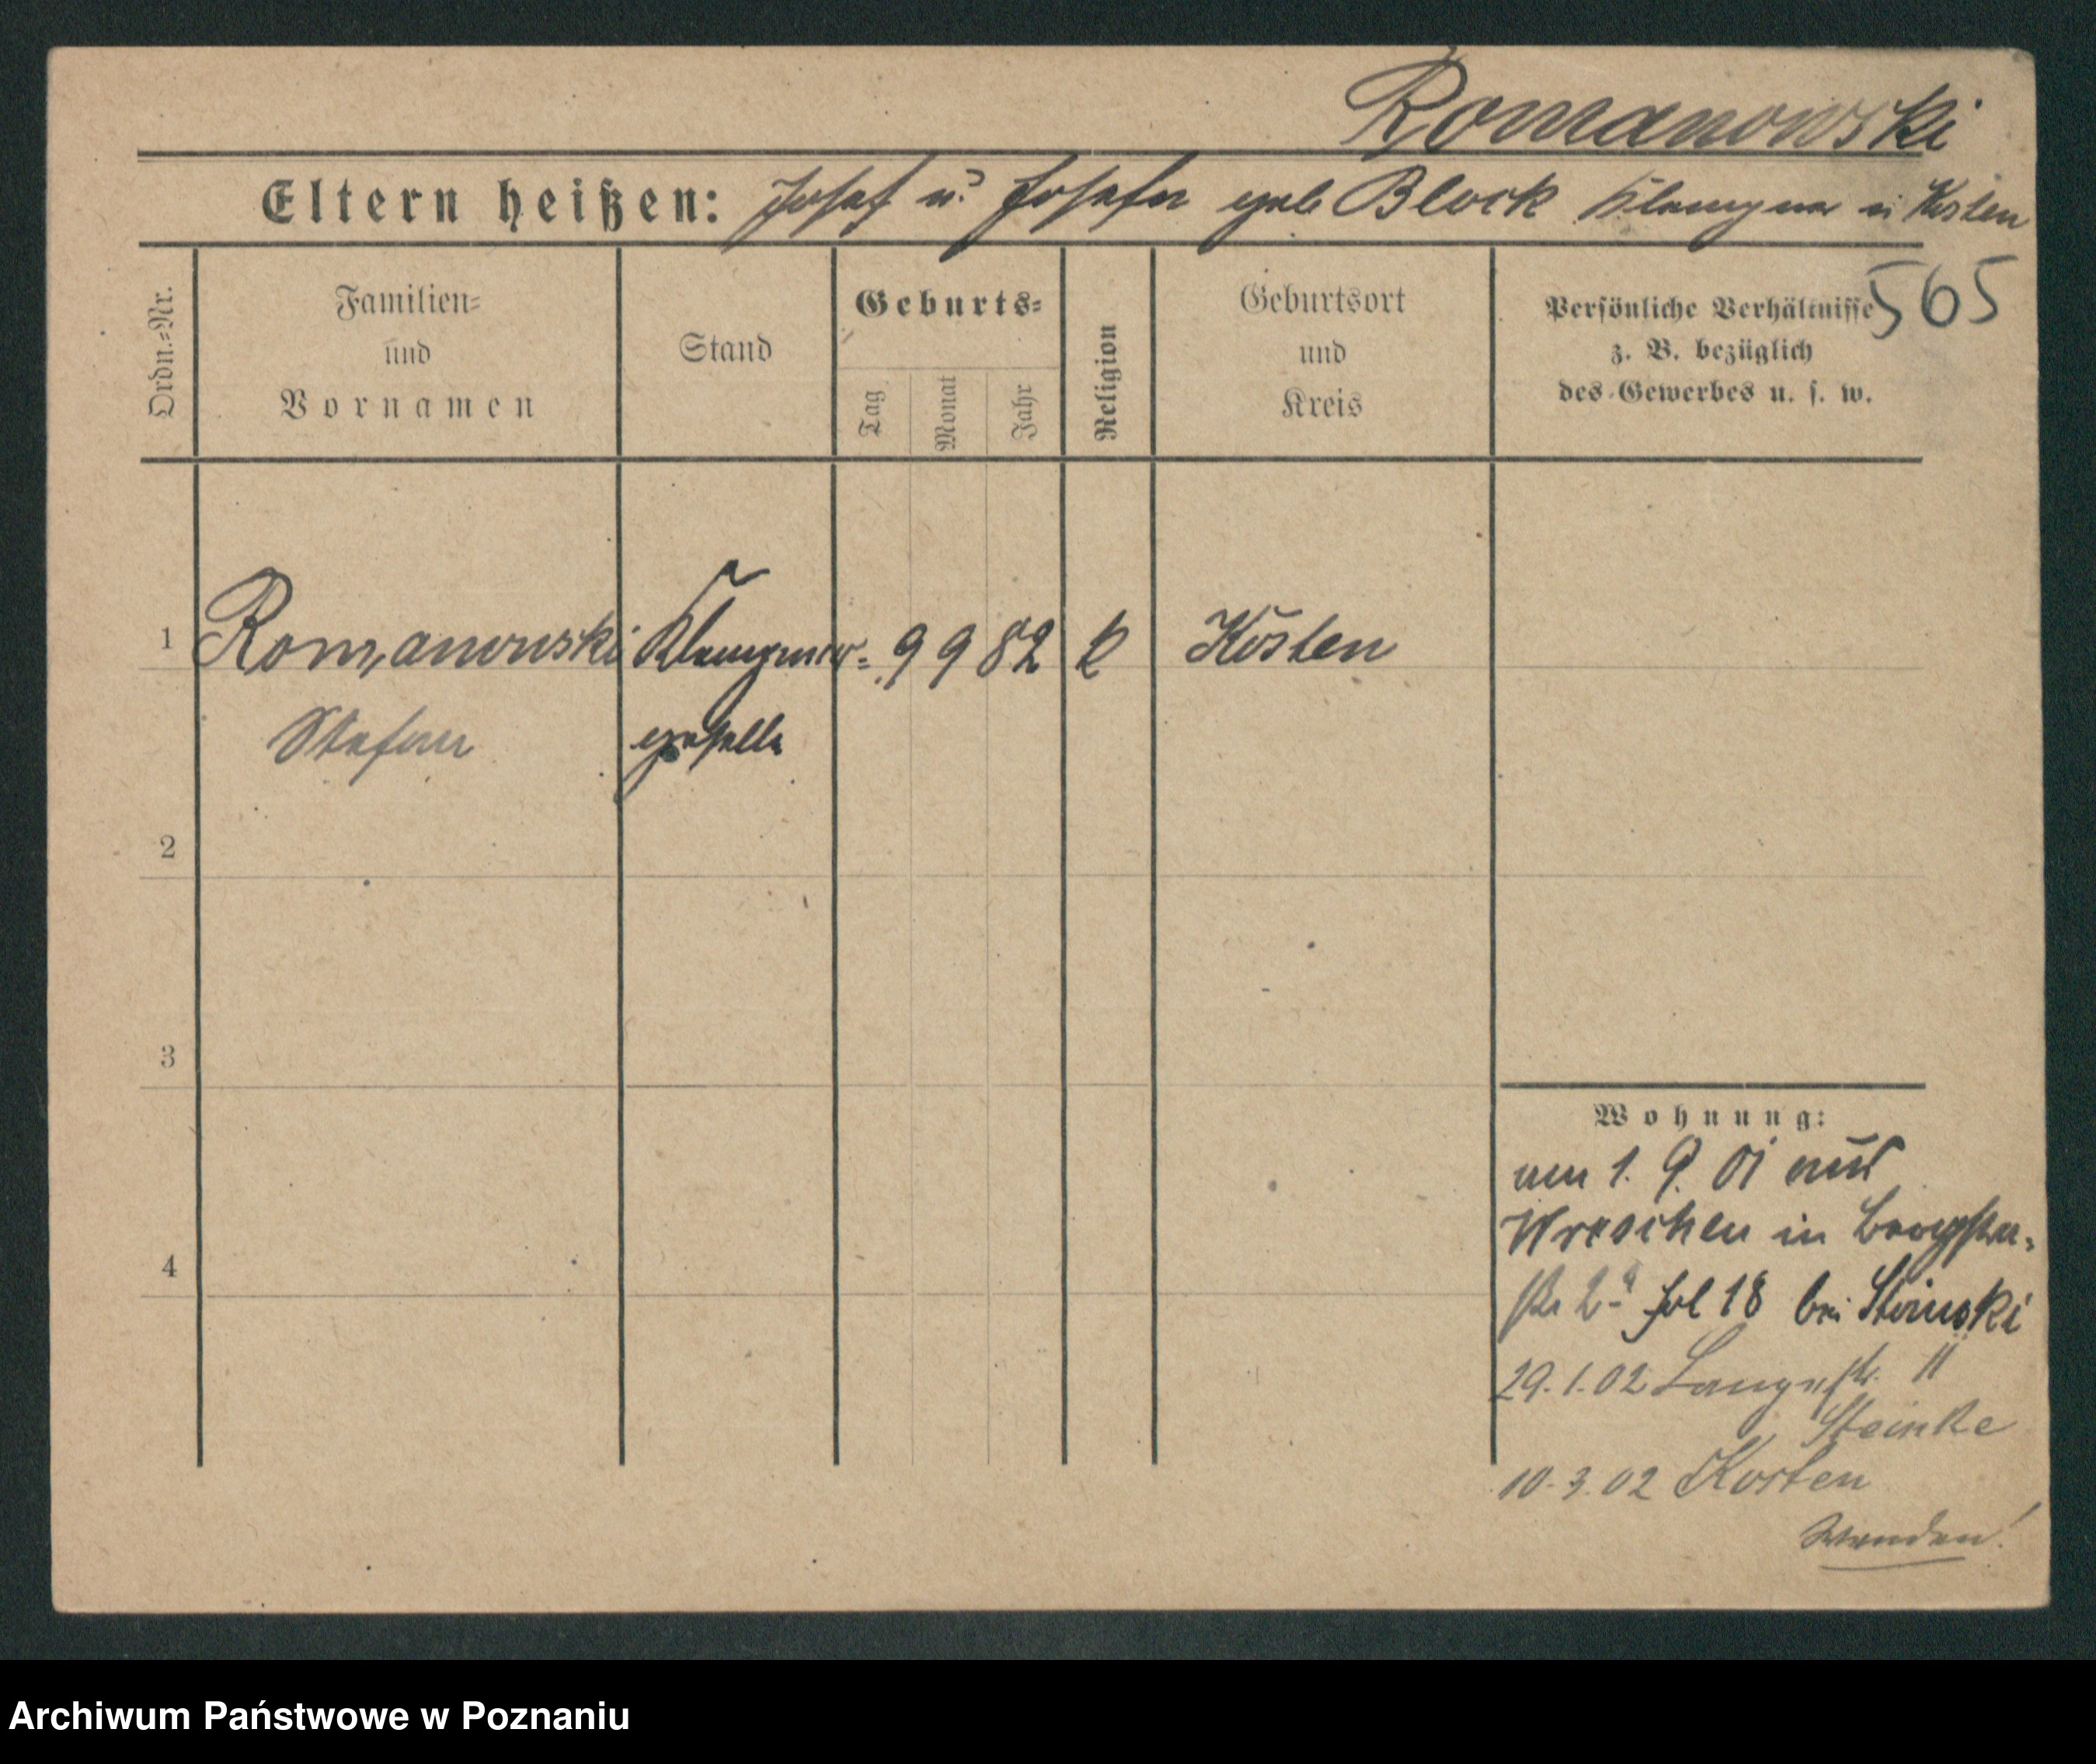 Romanowski
Eltern heißen: Josef u. Josefa geb Block Klempner in Kosten
565
Ordn.-Nr.
Familien-
und
Vornamen
Stand
Geburts-
Tag
Monat
Jahr
Religion
Geburtsort
und
Kreis
Persönliche Verhältnisse
z. B. bezüglich
des Gewerbes u. s. w.
1 Romanowski Klempner- 9 9 82 k Kosten
Stefan geselle
2
3
4
Wohnung:
am 1. 9. 01 aus
Wreschen in
18 bei Steinski
29. 1. 02 Langestr. 11
Steinke
10. 3. 02 Kosten
Wenden!
Archiwum Państwowe w Poznaniu